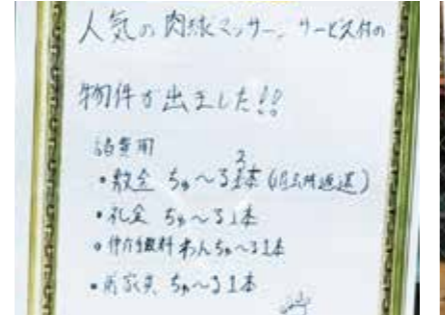 人気の肉球マッサー、サービス付の
物件が出ました!!
諸費用
・敷金 ちゅ〜る2本(退去時返還)
・礼金 ちゅ〜る1本
・仲介手数料 わんちゅ〜る1本
・前家賃 ちゅ〜る1本